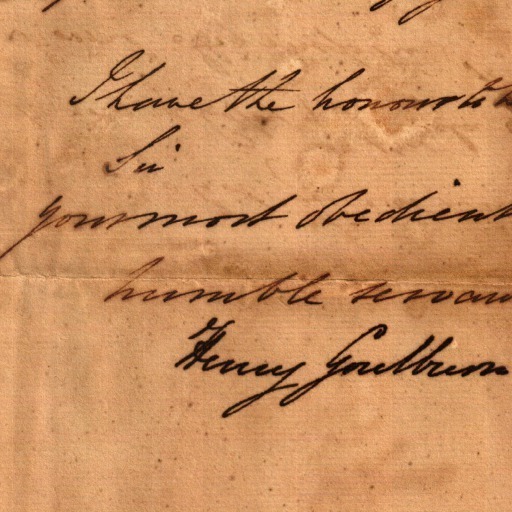 I have the honour to
Sir
your most obedient
humble
Henry Goulburn